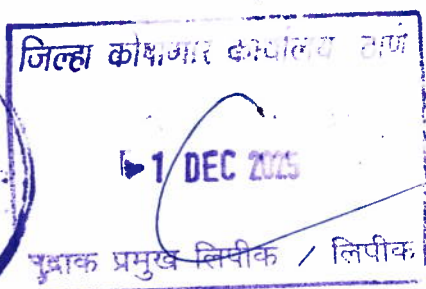 जिल्हा कोषागार कार्यालय ठाणे
1 DEC 2025
मुद्रांक प्रमुख लिपीक / लिपीक